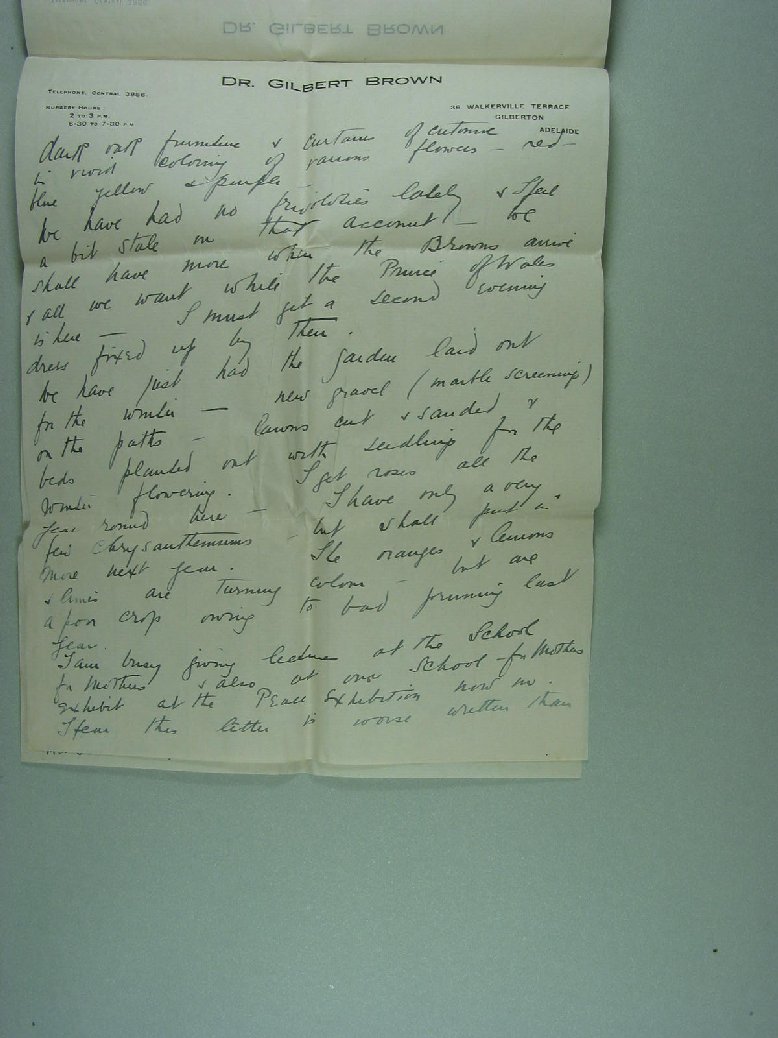 DR. GILBERT BROWN
DR. GILBERT BROWN
TELEPHONE, CENTRAL 3986.
SURGERY HOURS
2 TO 3 P.M.
6-30 TO 7-30 P.M.
36 WALKERVILLE TERRACE
GILBERTON
ADELAIDE
dark oak furniture & curtains of cretonne
in vivid coloring of various flowers – red –
blue yellow & purple –
We have had no frivolities lately & I feel
a bit stale on that account – We
shall have more when the Browns arrive
& all we want while the Prince of Wales
is here – I must get a second evening
dress fixed up by then.
We have just had the garden laid out
for the winter – new gravel (marble screenings)
on the paths – lawns cut & sanded &
beds planted out with seedlings for the
winter flowering. I get roses all the
year round here – I have only a very
few chrysanthemums – but shall put in
more next year. The oranges & lemons
& limes are turning colour – but are
a poor crop owing to bad pruning last
year.
I am busy giving lectures at the School
for Mothers & also at our School for Mothers
exhibit at the Peace Exhibition now on.
I fear this letter is worse written than